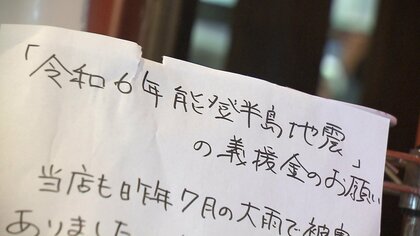 「令和6年能登半島地震」
の義援金のお願い
当店も昨年7月の大雨で被害
ありました